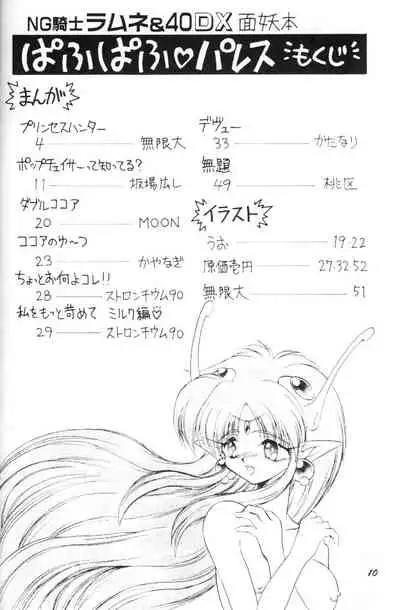 NG騎士ラムネ&40DX 面妖本
ぱふぱふ♡パレス もくじ
まんが
プリンセスハンター
4 無限大
ポップチェイサーって知ってる?
11 坂場広し
ダブルココア
20 MOON
ココアのゆ〜つ
23 かやなぎ
ちょっとお何よコレ!!
28 ストロンチウム90
私をもっと苛めて ミルク編♡
29 ストロンチウム90
デヴュー
33 かたなり
無題
49 桃区
イラスト
うお 19・22
原価壱円 27・32・52
無限大 51
10